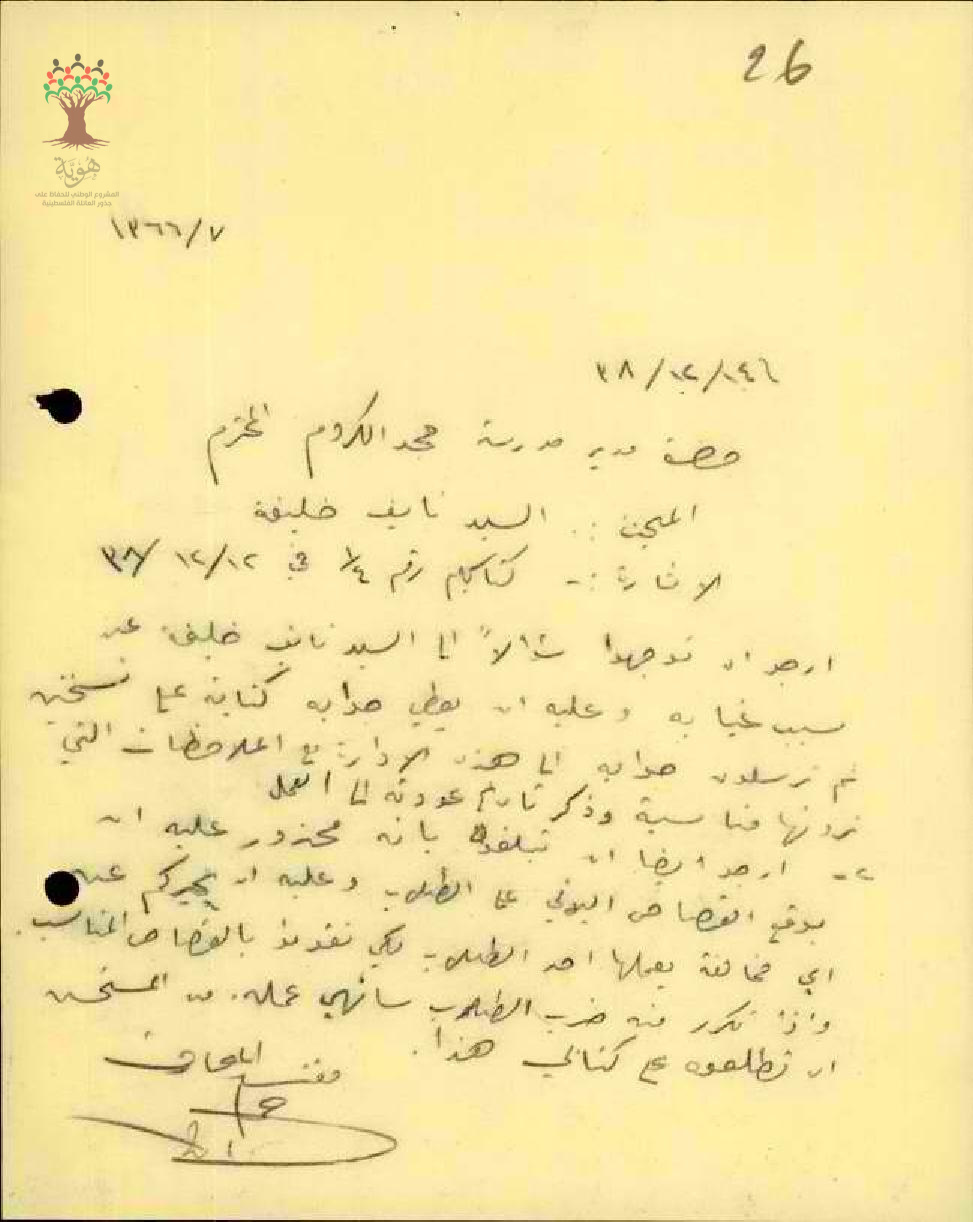 26
هُوِيَّة
المشروع الوطني للحفاظ على
جذور العائلة الفلسطينية
١٣٦٦/٧
٣٨/١٢/١٤٦
حضرة مدير مدرسة مجد الكروم المحترم
المبحث :. السيد نايف خليفة
الاشارة :- كتابكم رقم ١/٤ في ١٢/١٢/٣٨
ارجو ان توجهوا سؤالاً الى السيد نايف خليفة عن
سبب غيابه وعليه ان يعطي جوابه كتابة على نسختين
ثم ترسلون جوابه الى هذه الادارة مع الملاحظات التي
ترونها مناسبة وذكر تاريخ عودته الى العمل
٢- ارجو ايضا ان تبلغوه بانه محذور عليه ان
يوقع القصاص البدني على الطلاب وعليه ان يخبركم عن
اي مخالفة يعملها احد الطلاب لكي تقوموا بالقصاص المناسب.
واذا تكرر منه ضرب الطلاب سانهي عمله. من المستحسن
ان تطلعوه على كتابي هذا.
مفتش المعارف